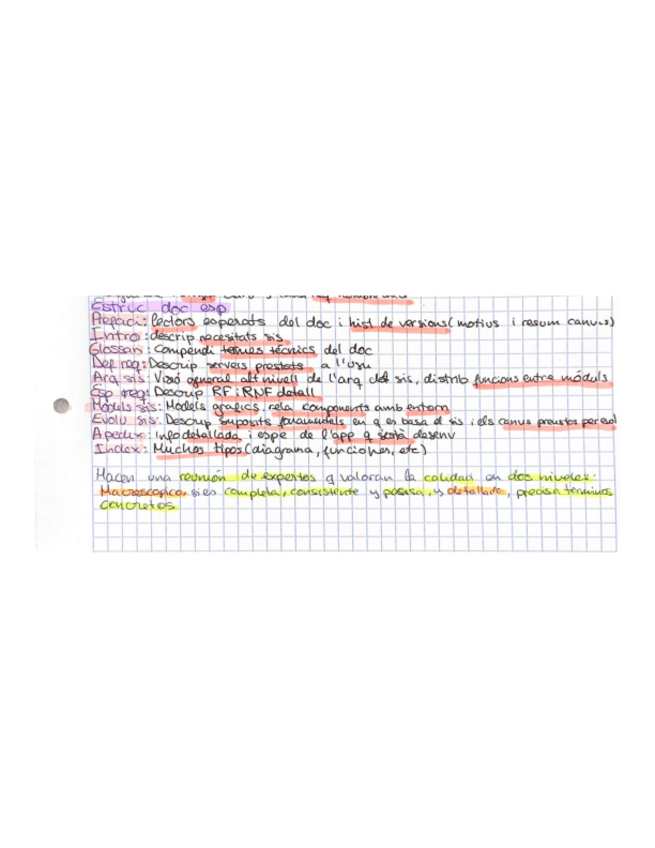 Estruc doc esp
Prefaci: lectors esperats del doc i hist de versions (motius i resum canvis)
Intro: descrip necesitats sis
Glossari: Compendi termes tècnics del doc
Def req: Descrip serveis prestats a l'usu
Arq sis: Visió general alt nivell de l'arq del sis, distrib funcions entre móduls
Esp req: Descrip RF i RNF detall
Models sis: Models gràfics, rela components amb entorn
Evolu sis: Descrip suposits fonamentals en q es basa el sis i els canvis previstos per
Apèndix: Info detallada i espe de l'app q s'està desenv
Index: Muchos tipos (diagrama, funciones, etc)
Hacen una reunión de expertos q valoran la calidad en dos niveles:
Macroscopico si es completa, consistente y y detallado, precisa terminos
concretos